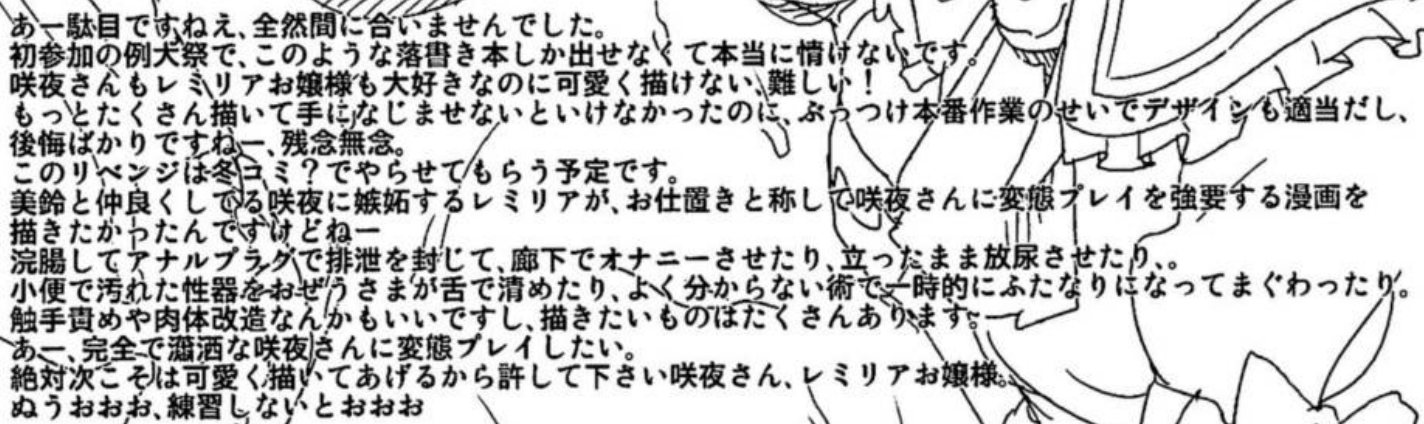 あー駄目ですねえ、全然間に合いませんでした。
初参加の例大祭で、このような落書き本しか出せなくて本当に情けないです。
咲夜さんもレミリアお嬢様も大好きなのに可愛く描けない、難しい！
もっとたくさん描いて手になじませないといけなかったのに、ぶっつけ本番作業のせいでデザインも適当だし、
後悔ばかりですねー、残念無念。
このリベンジは冬コミ？でやらせてもらう予定です。
美鈴と仲良くしてる咲夜に嫉妬するレミリアが、お仕置きと称して咲夜さんに変態プレイを強要する漫画を
描きたかったんですけどねー
浣腸してアナルプラグで排泄を封じて、廊下でオナニーさせたり、立ったまま放尿させたり、。
小便で汚れた性器をおぜうさまが舌で清めたり、よく分からない術で一時的にふたなりになってまぐわったり。
触手責めや肉体改造なんかもいいですし、描きたいものはたくさんあります。
あー、完全で瀟洒な咲夜さんに変態プレイしたい。
絶対次こそは可愛く描いてあげるから許して下さい咲夜さん、レミリアお嬢様。
ぬうおおお、練習しないとおおお